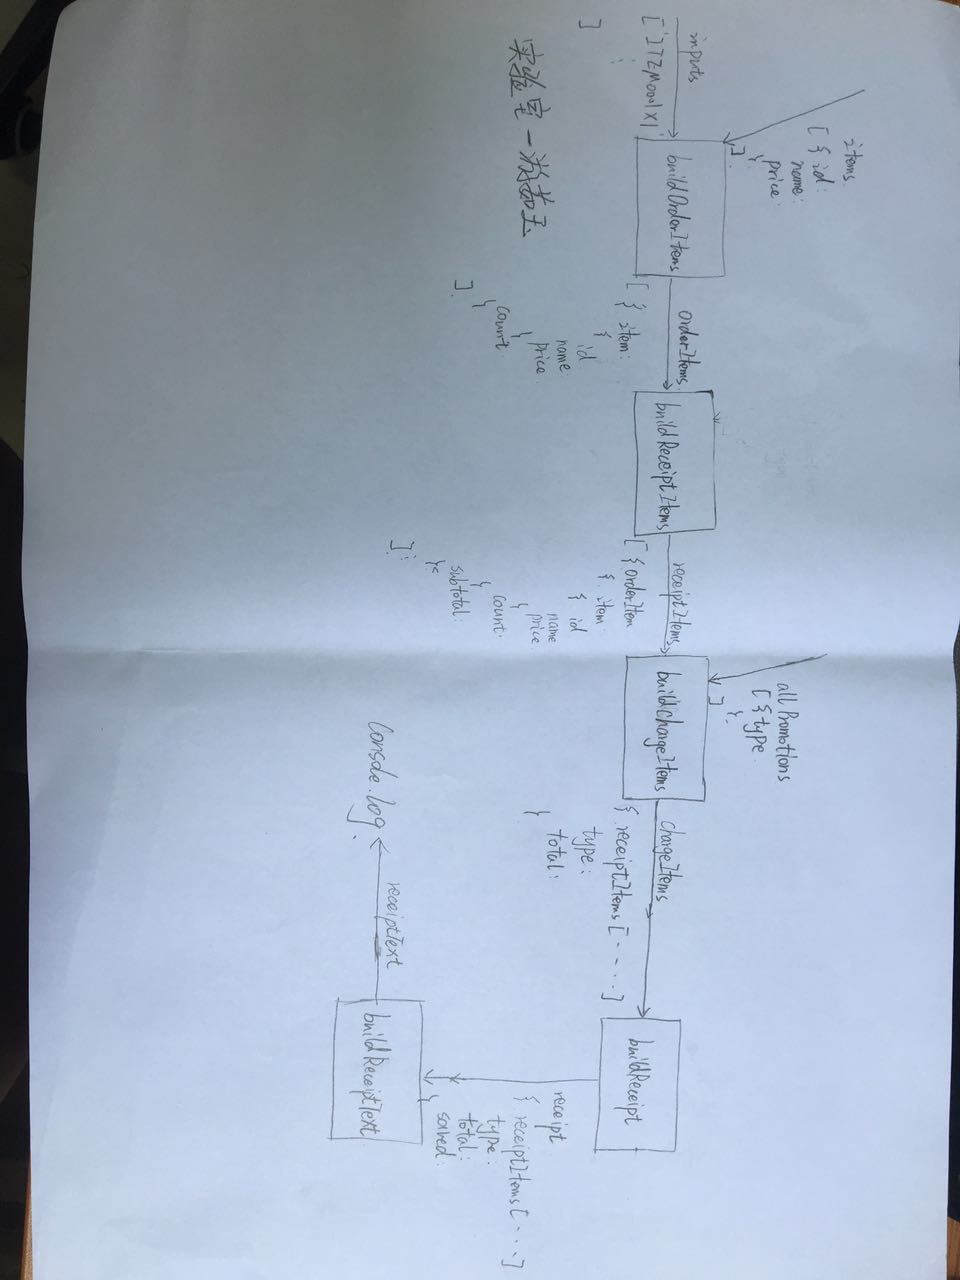 items
[ { id:
name:
price:
}
].
inputs
['ITEM000001 x 1'
:
]
buildOrderItems
orderItems
[ { item:
{ id
name
price:
}
count
}
].
buildReceiptItems
receiptItems
[ { orderItem
{ item
{ id
name
price
}
count:
}
subtotal:
}
]
allPromotions
[ { type
}
]
buildChargeItems
chargeItems
{ receiptItems [ ---- ]
type:
total:
}
buildReceipt
receipt
{ receiptItems [ ... ]
type:
total:
saved:
}
buildReceiptText
receiptText
console.log
实验室一